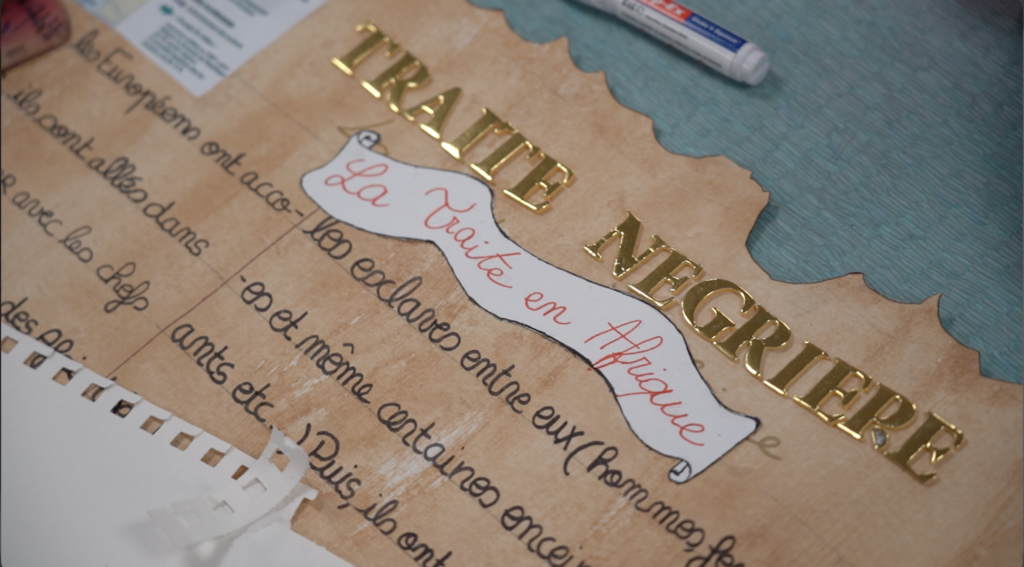 TRAITE NEGRIERE
La Traite en Afrique
les Européens ont acco-
ils sont allés dans
avec les chefs
des
les esclaves entre eux (hommes, fe
-es et même certaines encei
ants etc.) Puis, ils ont